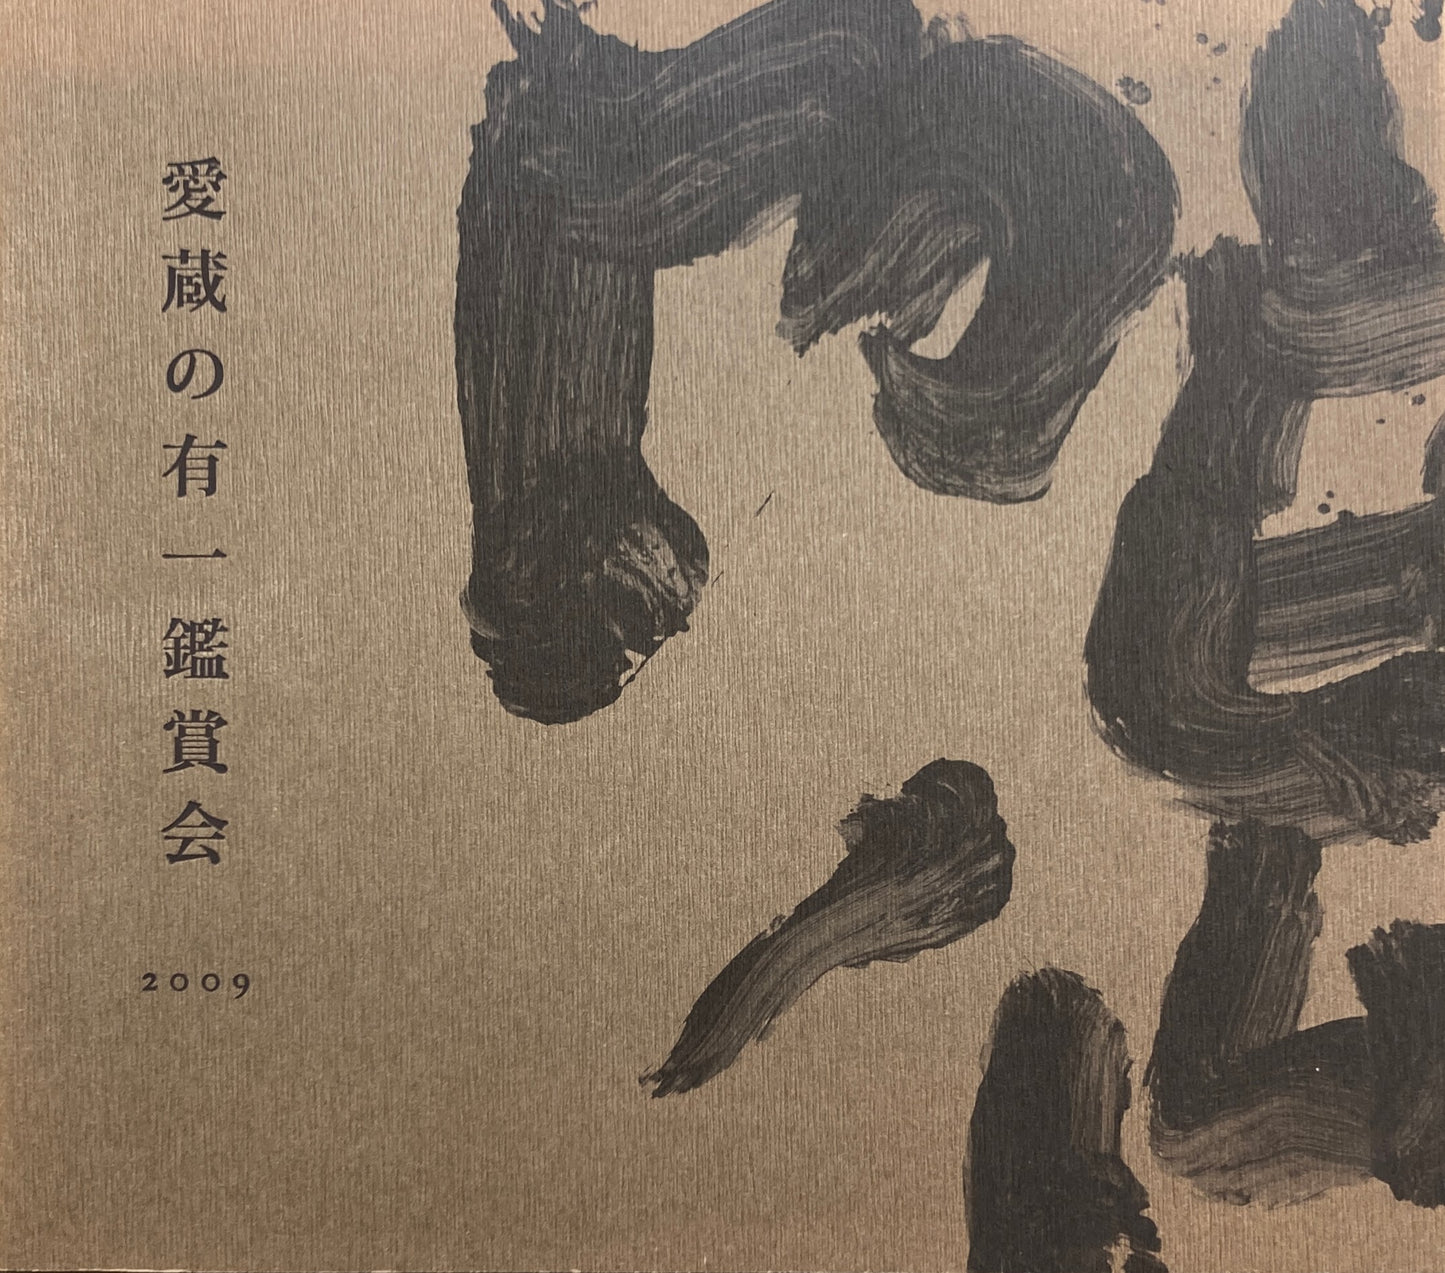 愛蔵の有一鑑賞会
2009